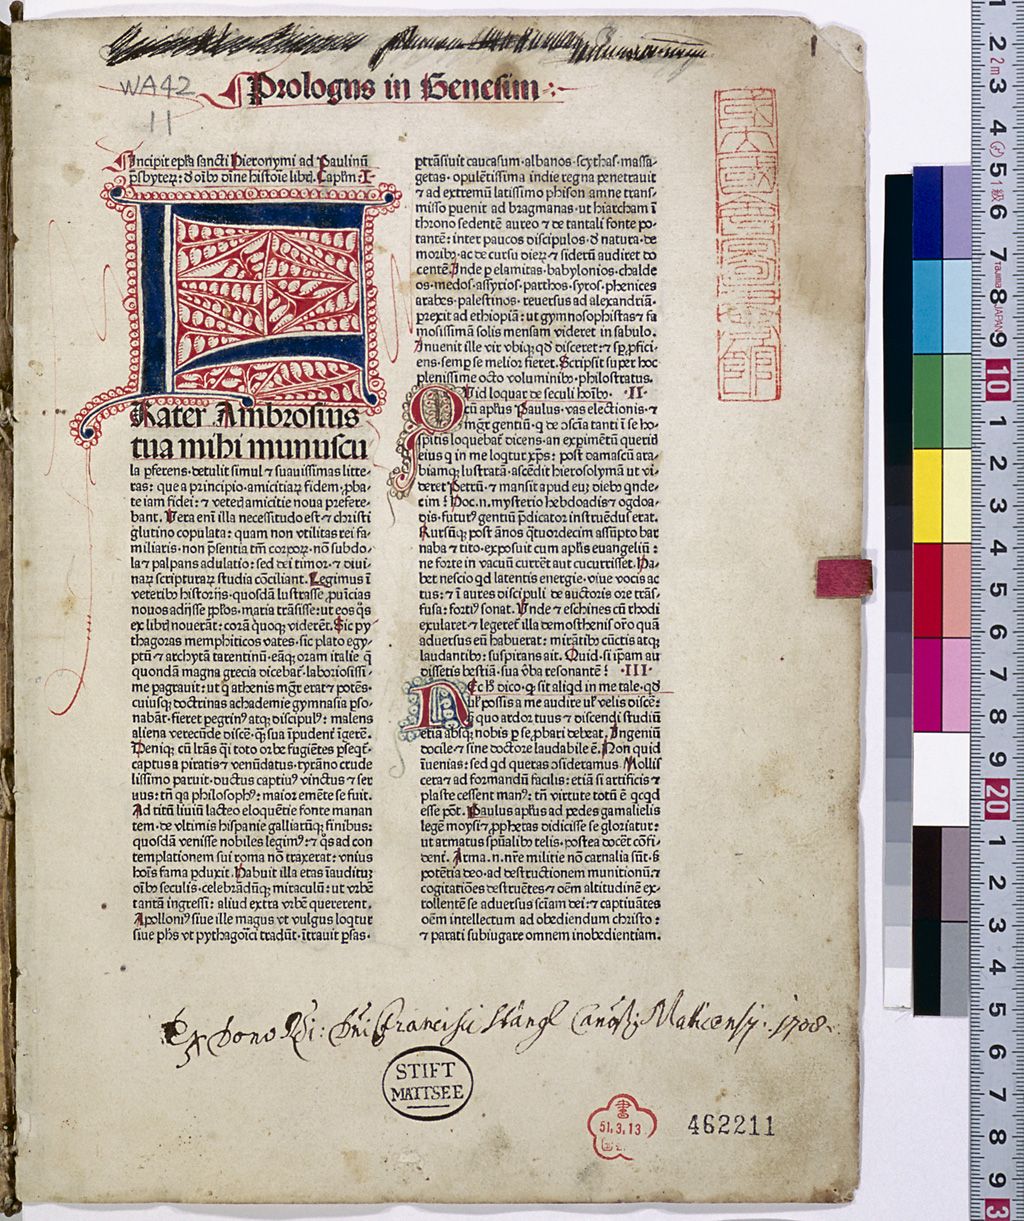 WA42
11
Prologus in Genesim
Incipit epl̃a sancti Hieronymi ad Paulinũ
p̃sbyteꝝ: d̓ oĩbꝰ diuine histoĩe libꝛ̃. Capl̃m·I·
FRater Ambrosius
tua mihi munuscu
la ꝑferens·detulit simul ⁊ suauissimas litte-
ras: que a principio·amicitiaꝝ fidem·ꝓba-
te iam fidei: ⁊ veterꝫ amicitie noua prefere-
bant. Vera enĩ illa necessitudo est·⁊ christi
glutino copulata: quam non vtilitas rei fa-
miliaris·non p̃sentia tm̃ corpoꝝ·nõ subdo-
la ⁊ palpans adulatio: sed dei timor·⁊ diui-
naꝝ scripturaꝝ studia cõciliant. Legimus ĩ
veteribꝰ historijs·quosdã lustrasse ꝓuĩcias
nouos adĩjsse pp̃los·maria trãsisse: ut eos q̃s
ex librꝫ nouerãt: corã quoqꝫ viderẽt. Sic py-
thagoras memphiticos vates·sic plato egy-
ptũ ⁊ archytã tarentinũ·eãqꝫ oram italie q̃
quondã magna grecia dicebat̃·laboriosissi-
me pagrauit: ut q̃ athenis mgr̃ erat ⁊ potẽs·
cuiusqꝫ doctrinas achademie gymnasia ꝑso-
nabãt·fieret pegrinꝰ atqꝫ discipulꝰ: malens
aliena verecũde discẽ·q̃ sua ĩpudent̃ ĩgerẽ.
Deniqꝫ cũ lr̃as q̃i toto orbe fugiẽtes ꝑseq̃t̃·
captus a piratis ⁊ venũdatus·tyrãno crude
lissimo paruit·ductus captiuꝰ vinctus ⁊ ser
uus: tñ qa philosophꝰ: maior emẽte se fuit.
Ad titũ liuiũ lacteo eloquẽtie fonte manan
tem·de vltimis hispanie galliarũqꝫ finibus:
quosdã venisse nobiles legimꝰ: ⁊ q̃s ad con
templationem sui roma nõ traxerat: vnius
hoĩs fama ꝑduxit. Habuit illa etas ĩauditũ
oĩbꝰ seculis·celebrãdũqꝫ miraculũ: ut vrbẽ
tantã ingressi: aliud extra vrbẽ quererent.
Apolloniꝰ siue ille magus vt vulgus loqtur
siue ph̃s vt pythagoici tradũt·ĩtrauit ꝑsas·
ptrãsiuit caucasum·albanos·scythas·massa-
getas·opulẽtissima indie regna penetrauit
⁊ ad extremũ latissimo phison amne trans-
misso puenit ad bragmanas·ut hiarcham ĩ
throno sedentẽ aureo ⁊ de tantali fonte po-
tantẽ: inter paucos discipulos·d̓ natura·de
moribꝰ·ac de cursu dieꝝ ⁊ siderũ audiret do
centẽ. Inde ꝑ elamitas·babylonios·chalde
os·medos·assyrios·parthos·syros·phenices
arabes·palestinos·reuersus ad alexandriã·
ꝑrexit ad ethiopiã: ut gymnosophistas ⁊ fa
mosissimã solis mensam videret in sabulo.
Inuenit ille vir vbiqꝫ qd̓ disceret: ⁊ sꝑ ꝓfici-
ens·semꝑ se melior fieret. Scripsit super hoc
plenissime octo voluminibꝰ·philostratus.
QVid loquar de seculi hoĩbꝰ·II·
cũ apl̃us Paulus·vas electionis·⁊
mgr̃ gentiũ·q̃ de cõsciã tanti ĩ se ho-
spitis loquebat̃ dicens·an exꝑimẽtũ queritꝫ
eius q̃ in me loqtur xp̃s: post damascũ ara-
biamqꝫ lustratã·ascẽdit hierosolymã ut vi-
deret Petrũ·⁊ mansit apud euꝫ diebꝰ qnde-
cim! Hoc.n.mysterio hebdoadis ⁊ ogdoa-
dis·futurꝰ gentiũ p̃dicator instruẽdus erat.
Rursũqꝫ post ãnos q̃tuordecim assũpto bar
naba ⁊ tito·exposuit cum apl̃is euangeliũ:
ne forte in vacuũ currẽt aut cucurrisset. Ha-
bet nescio qd̓ latentis energie·viue vocis ac
tus: ⁊ ĩ aures discipuli de auctoris ore trãs-
fusa: fortiꝰ sonat. Vnde ⁊ eschines cũ rhodi
exularet·⁊ legeret̃ illa demosthenis orõ quã
aduersus eũ habuerat: mirãtibꝰ cũctis atqꝫ
laudantibꝰ: suspirans ait. Quid·si ip̃am au
dissetis bestiã·sua v̓ba resonantẽ! ·III·
NEc h̓ dico·q̃ sit aliqd in me tale·qd̓
ul̓ possis a me audire ul̓ velis discẽ:
s̓ quo ardor tuus ⁊ discendi studiũ
etiã absqꝫ nobis ꝑ se ꝓbari debeat. Ingeniũ
docile ⁊ sine doctore laudabile ẽ. Non quid
ĩuenias: sed qd queras ↄsideramus. Mollis
cera ⁊ ad formandũ facilis: etiã si artificis ⁊
plaste cessent manꝰ: tñ virtute totũ ẽ qcqd
esse põt. Paulus apl̃us ad pedes gamalielis
legẽ moysi ⁊ ꝓphetas didicisse se gloriatur:
ut armatus spũalibꝰ telis·postea docẽt cõfi-
denť. Arma.n.nr̃e militie nõ carnalia sũt·s̓
potẽtia deo·ad destructionem munitionũ: ⁊
cogitatiões destruẽtes ⁊ oẽm altitudinẽ ex-
tollentẽ se aduersus sciam dei: ⁊ captiuãtes
oẽm intellectum ad obediendum christo:
⁊ parati subiugare omnem inobedientiam.
Ex Dono Rdi: Dni Francisci Stängl Canõci Matticensis. 1708.
STIFT
MATTSEE
51.3.13
462211